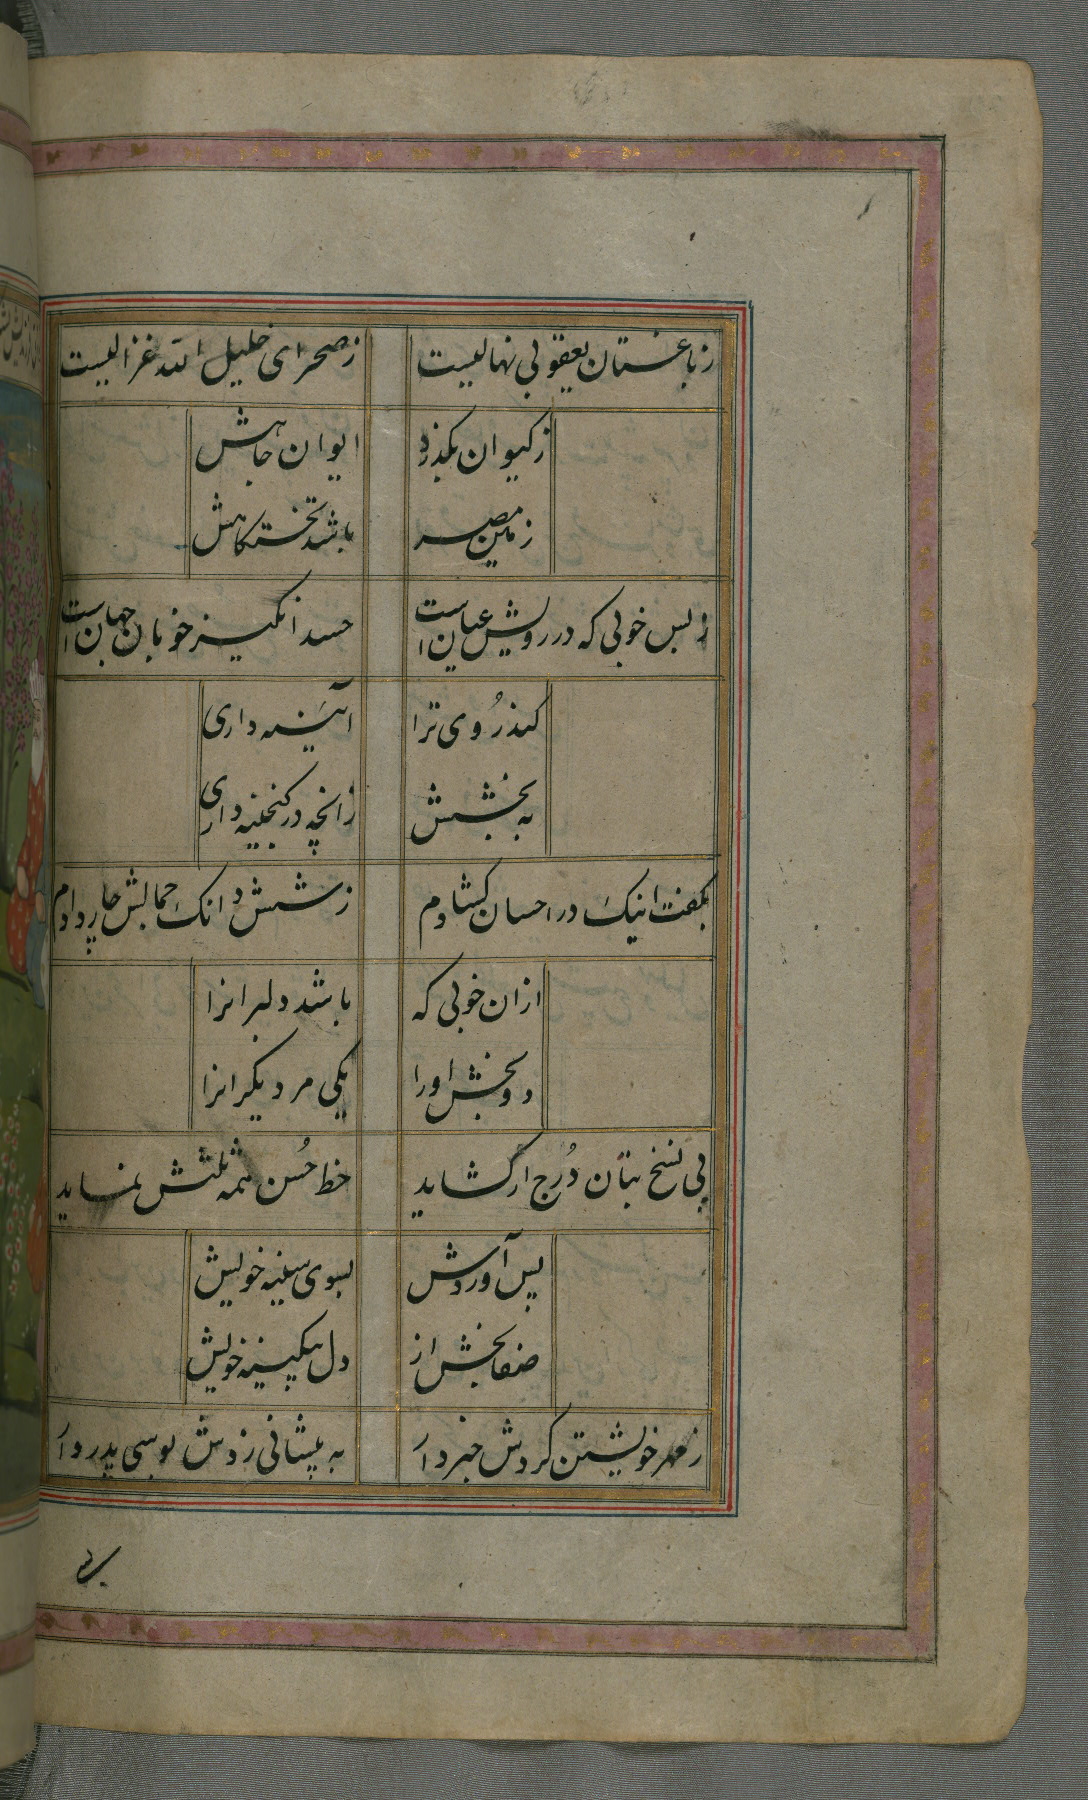 زباغستان یعقوبی نهالیست زصحرای خلیل الله غزالیست
زکیوان بگذرد ایوان جاهش
زمین مصر باشد تختگاهش
زبس خوبی که در رویش عیانست حسد انگیز خوبان جهانست
کندرُوی ترا آئینه داری
به بخشش زانچه در گنجینه داری
بگفت اینک در احسان گشادم ز شش دانگ جمالش چار دادم
ازان خوبی که باشد دلبرانرا
دو بخش اورا یکی مر دیگرانرا
پی نسخ بتان دُرج ار گشاید خط حُسن همه ثلثش نماید
پس آوردش بسوی سینه خویش
صفابخش از دل بیکینه خویش
زمهر خویشتن کردش خبردار به پیشانی زدش بوسی پدروار